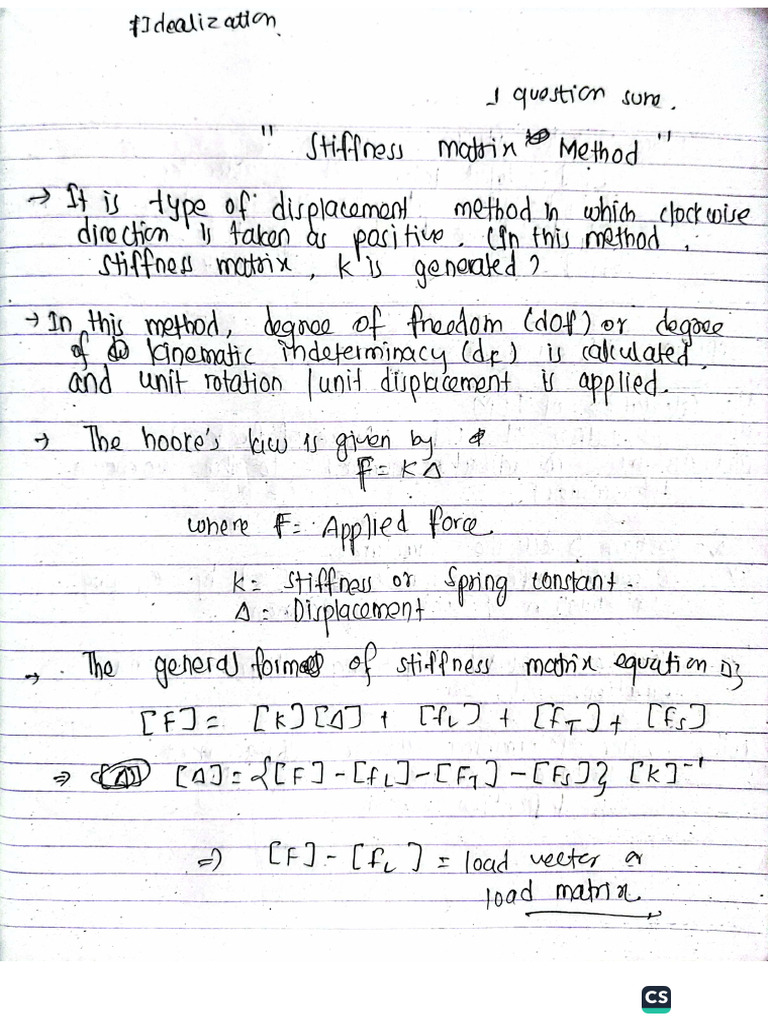 #Idealization.
1 question sure.
" Stiffness matrix Method "
→ It is type of displacement method in which clockwise
direction is taken as positive. (In this method,
stiffness matrix, K is generated)
→ In this method, degree of freedom (dof) or degree
of kinematic indeterminacy (dk) is calculated
and unit rotation / unit displacement is applied.
→ The hooke's law is given by
F = K Δ
where F = Applied force.
K = Stiffness or Spring constant.
Δ = Displacement
→ The general form of stiffness matrix equation is
[F] = [K][Δ] + [fL] + [fT] + [fS]
⇒ [Δ] = {[F] - [fL] - [FT] - [FS]} [K]⁻¹
⇒ [F] - [fL] = load vector or
load matrix.
CS